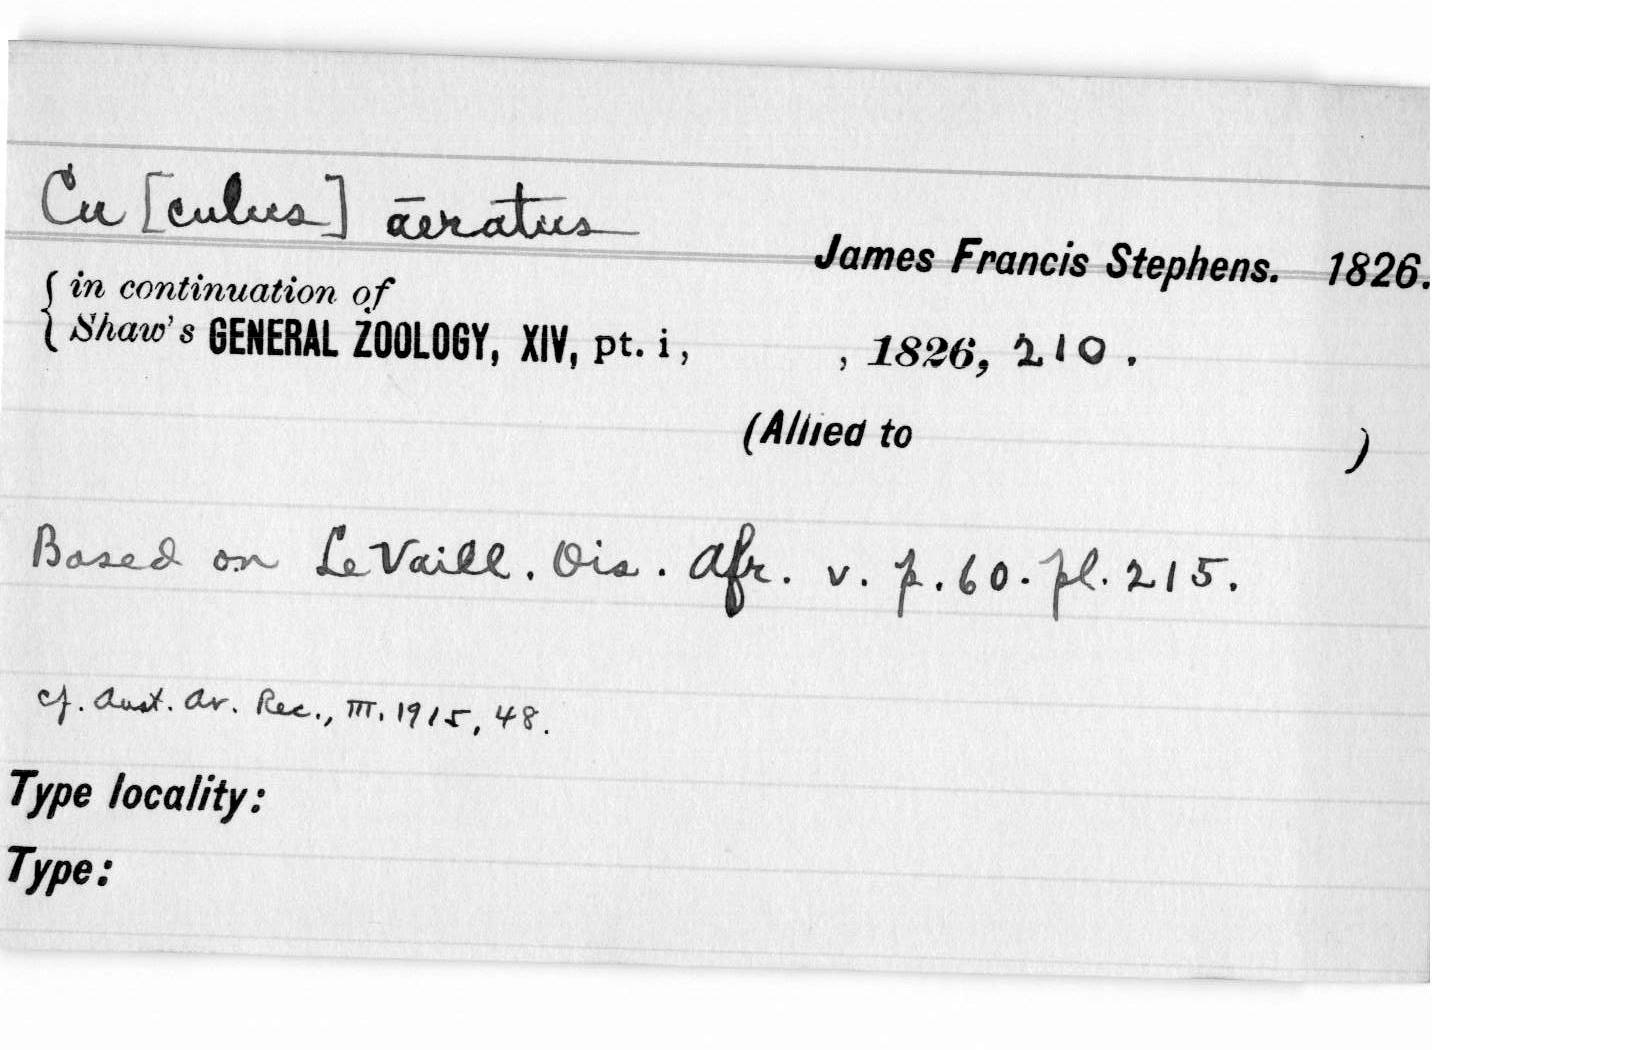 Cu [culus] aeratus
James Francis Stephens. 1826.
{ in continuation of
Shaw's GENERAL ZOOLOGY, XIV, pt. i, , 1826, 210.
(Allied to )
Based on LeVaill. Ois. Afr. v. p. 60. pl. 215.
cf. Aust. Av. Rec., III. 1915, 48.
Type locality:
Type: